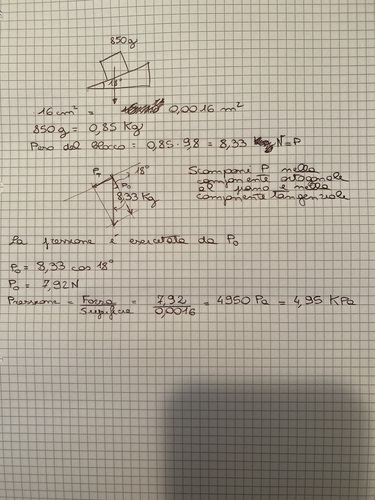 850g
18°
16 cm² = 0,0016 m²
850g = 0,85 Kg
Peso del blocco = 0,85 · 9,8 = 8,33 N = P
18°
P₀
8,33 Kg
Scompone P nella
componente ortogonale
al piano e nella
componente tangenziale
La pressione è esercitata da P₀
P₀ = 8,33 cos 18°
P₀ = 7,92 N
Pressione = Forza / Superficie = 7,92 / 0,0016 = 4950 Pa = 4,95 KPa